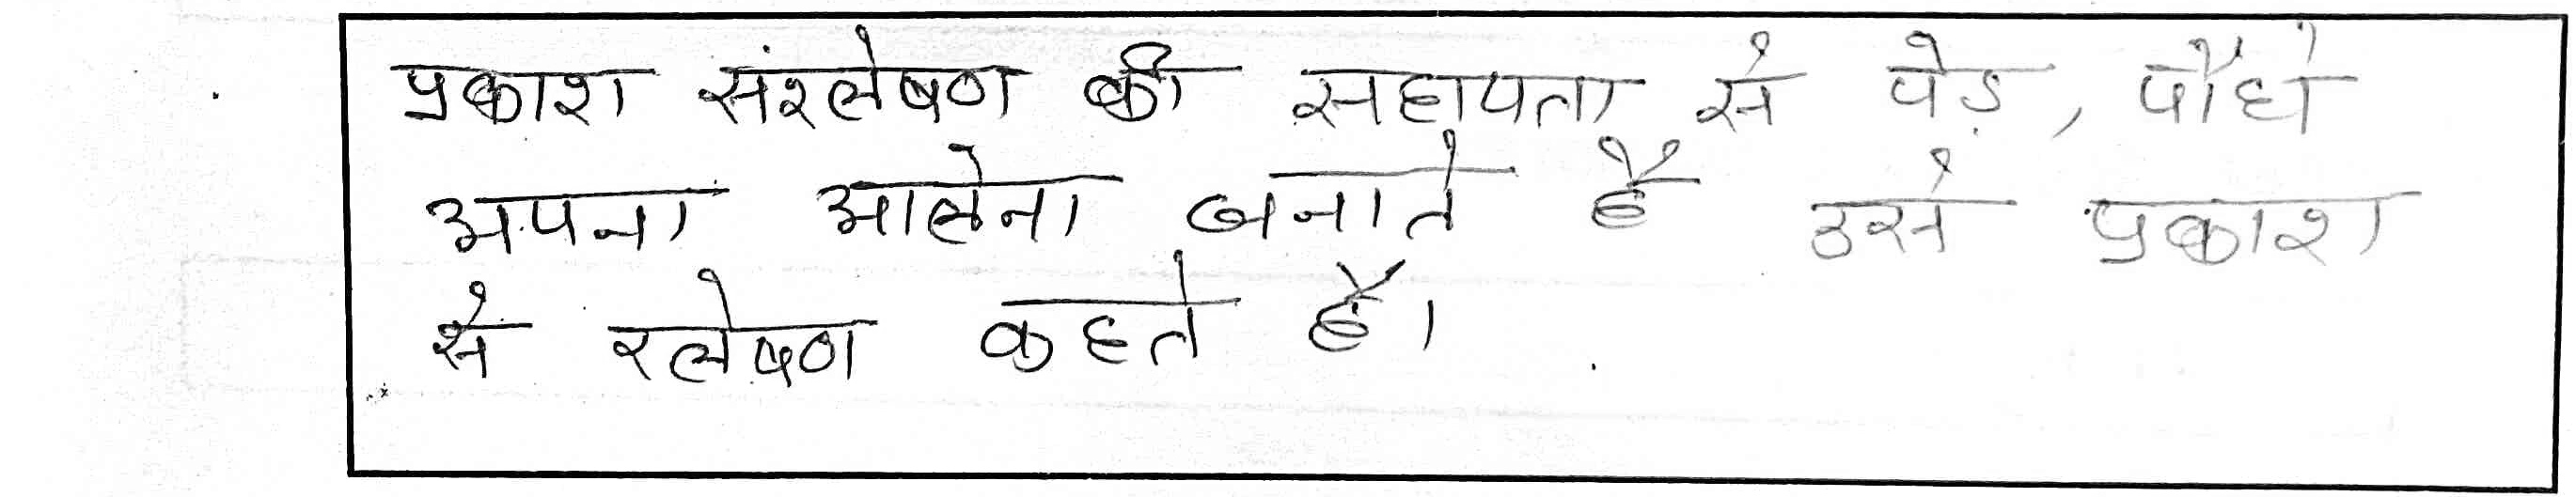 प्रकाश संश्लेषण की सहायता से पेड़, पौधे
अपना आलेना बनाते है उसे प्रकाश
से श्लेषण कहते है।